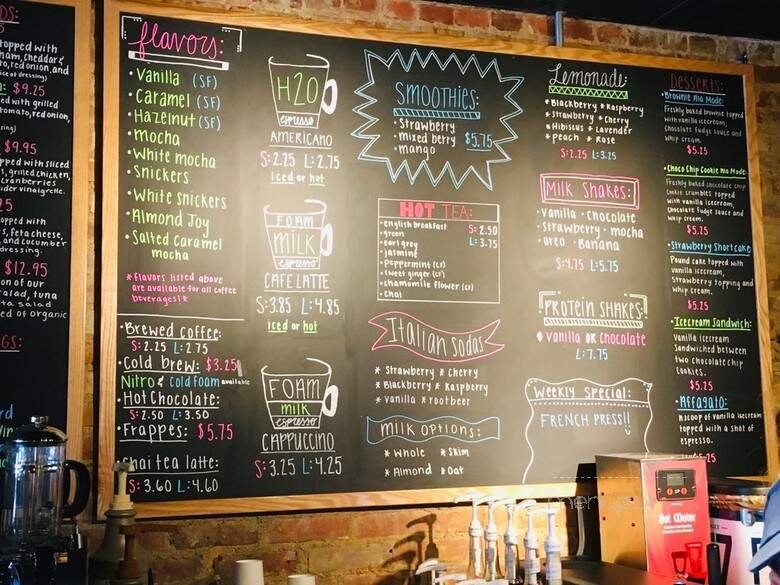 DS:
topped with
ham, cheddar,
to, red onion, and
ice of dressing)
: $9.25
ed with grilled
tomato, red onion,
sing)
$9.95
pped with sliced
, grilled chicken,
cranberries
ider vinaigrette.
25
opped with
s, feta cheese,
and cucumber
dressing.
$12.95
on of our
salad, tuna
ta salad
ed of organic
GS:
rd
flavors:
• Vanilla (SF)
• Caramel (SF)
• Hazelnut (SF)
• mocha
• White mocha
• Snickers
• White snickers
• Almond Joy
• Salted caramel
mocha
*flavors listed above
are available for all coffee
beverages!*
• Brewed coffee:
S: 2.25 L: 2.75
• Cold brew: $3.25
Nitro & Cold foam available
• Hot Chocolate:
S: 2.50 L: 3.50
• Frappes: $5.75
chai tea latte:
S: 3.60 L: 4.60
H2O
espresso
AMERICANO
S: 2.25 L: 2.75
iced or hot
FOAM
MILK
espresso
CAFE LATTE
S: 3.85 L: 4.85
iced or hot
FOAM
milk
espresso
CAPPUCCINO
S: 3.25 L: 4.25
SMOOTHIES:
• Strawberry
• mixed berry $5.75
• mango
HOT TEA:
• english breakfast S: 2.50
• green L: 3.75
• earl grey
• jasmine
• peppermint (cf)
• sweet ginger (cf)
• chamomile flower (cf)
• chai
Italian sodas
* Strawberry * Cherry
* Blackberry * Raspberry
* vanilla * rootbeer
milk options:
* Whole * Skim
* Almond * Oat
Lemonade:
* Blackberry * Raspberry
* Strawberry * Cherry
* Hibiscus * Lavender
* peach * Rose
S: 2.25 L: 3.25
Milk Shakes:
Vanilla • chocolate
Strawberry • mocha
oreo • Banana
S: 4.75 L: 5.75
PROTEIN SHAKES:
♦ vanilla OR chocolate
L: 7.75
Weekly Special:
FRENCH PRESS!!
Desserts:
• Brownie Ala Mode:
Freshly baked brownie topped
with vanilla icecream,
chocolate fudge sauce and
whip cream.
$5.25
• Choco Chip Cookie Ala Mode:
Freshly baked chocolate chip
cookie crumbles topped
with vanilla icecream,
chocolate fudge sauce and
whip cream.
$5.25
• Strawberry Shortcake
Pound cake topped with
vanilla icecream,
strawberry topping and
whip cream.
$5.25
• Icecream Sandwich:
Vanilla icecream
sandwiched between
two chocolate chip
cookies.
$5.25
• Affagato:
A scoop of vanilla icecream
topped with a shot of
espresso.
Hot Water